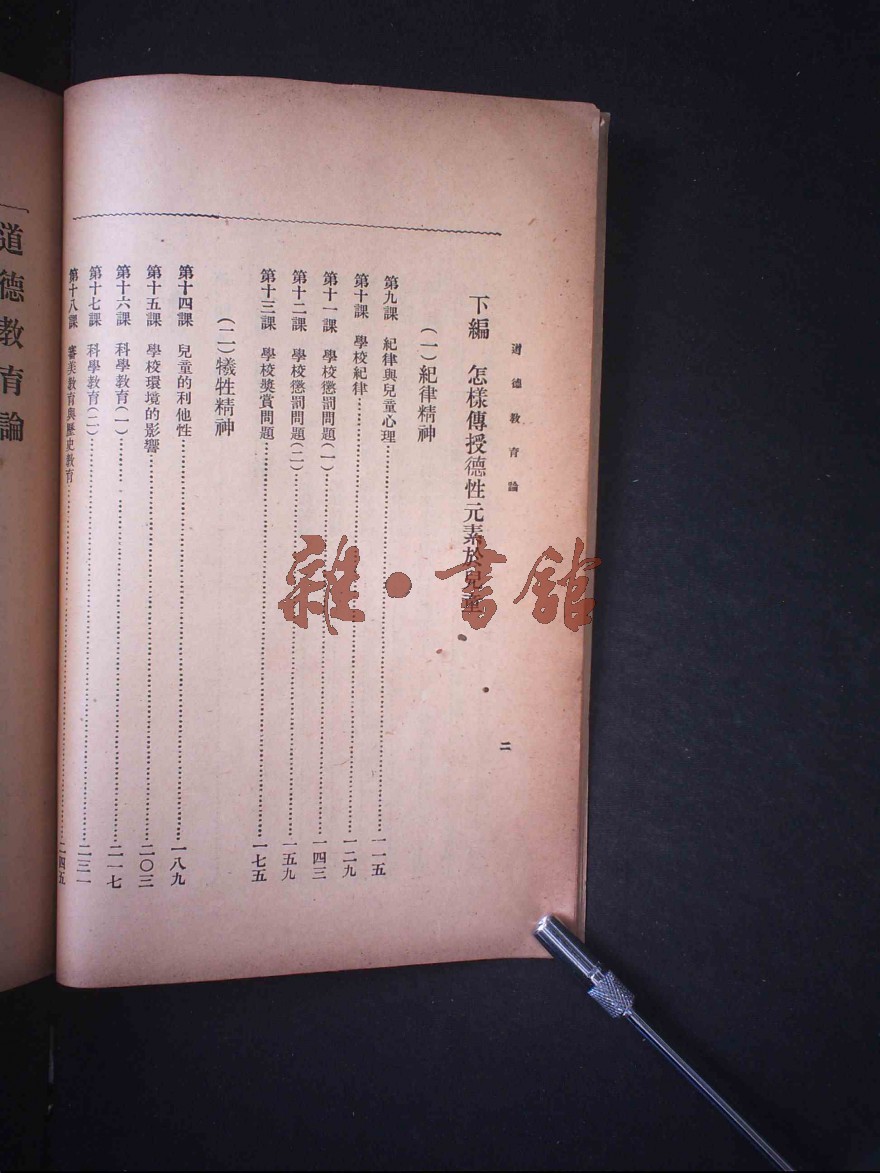 道德教育論
二
下編　怎樣傳授德性元素於兒童
(一)紀律精神
第九課　紀律與兒童心理……一一五
第十課　學校紀律……一二九
第十一課　學校懲罰問題(一)……一四三
第十二課　學校懲罰問題(二)……一五九
第十三課　學校獎賞問題……一七五
(二)犧牲精神
第十四課　兒童的利他性……一八九
第十五課　學校環境的影響……二〇三
第十六課　科學教育(一)……二一七
第十七課　科學教育(二)……二三一
第十八課　審美教育與歷史教育……二四五
道德教育論
雜·書館